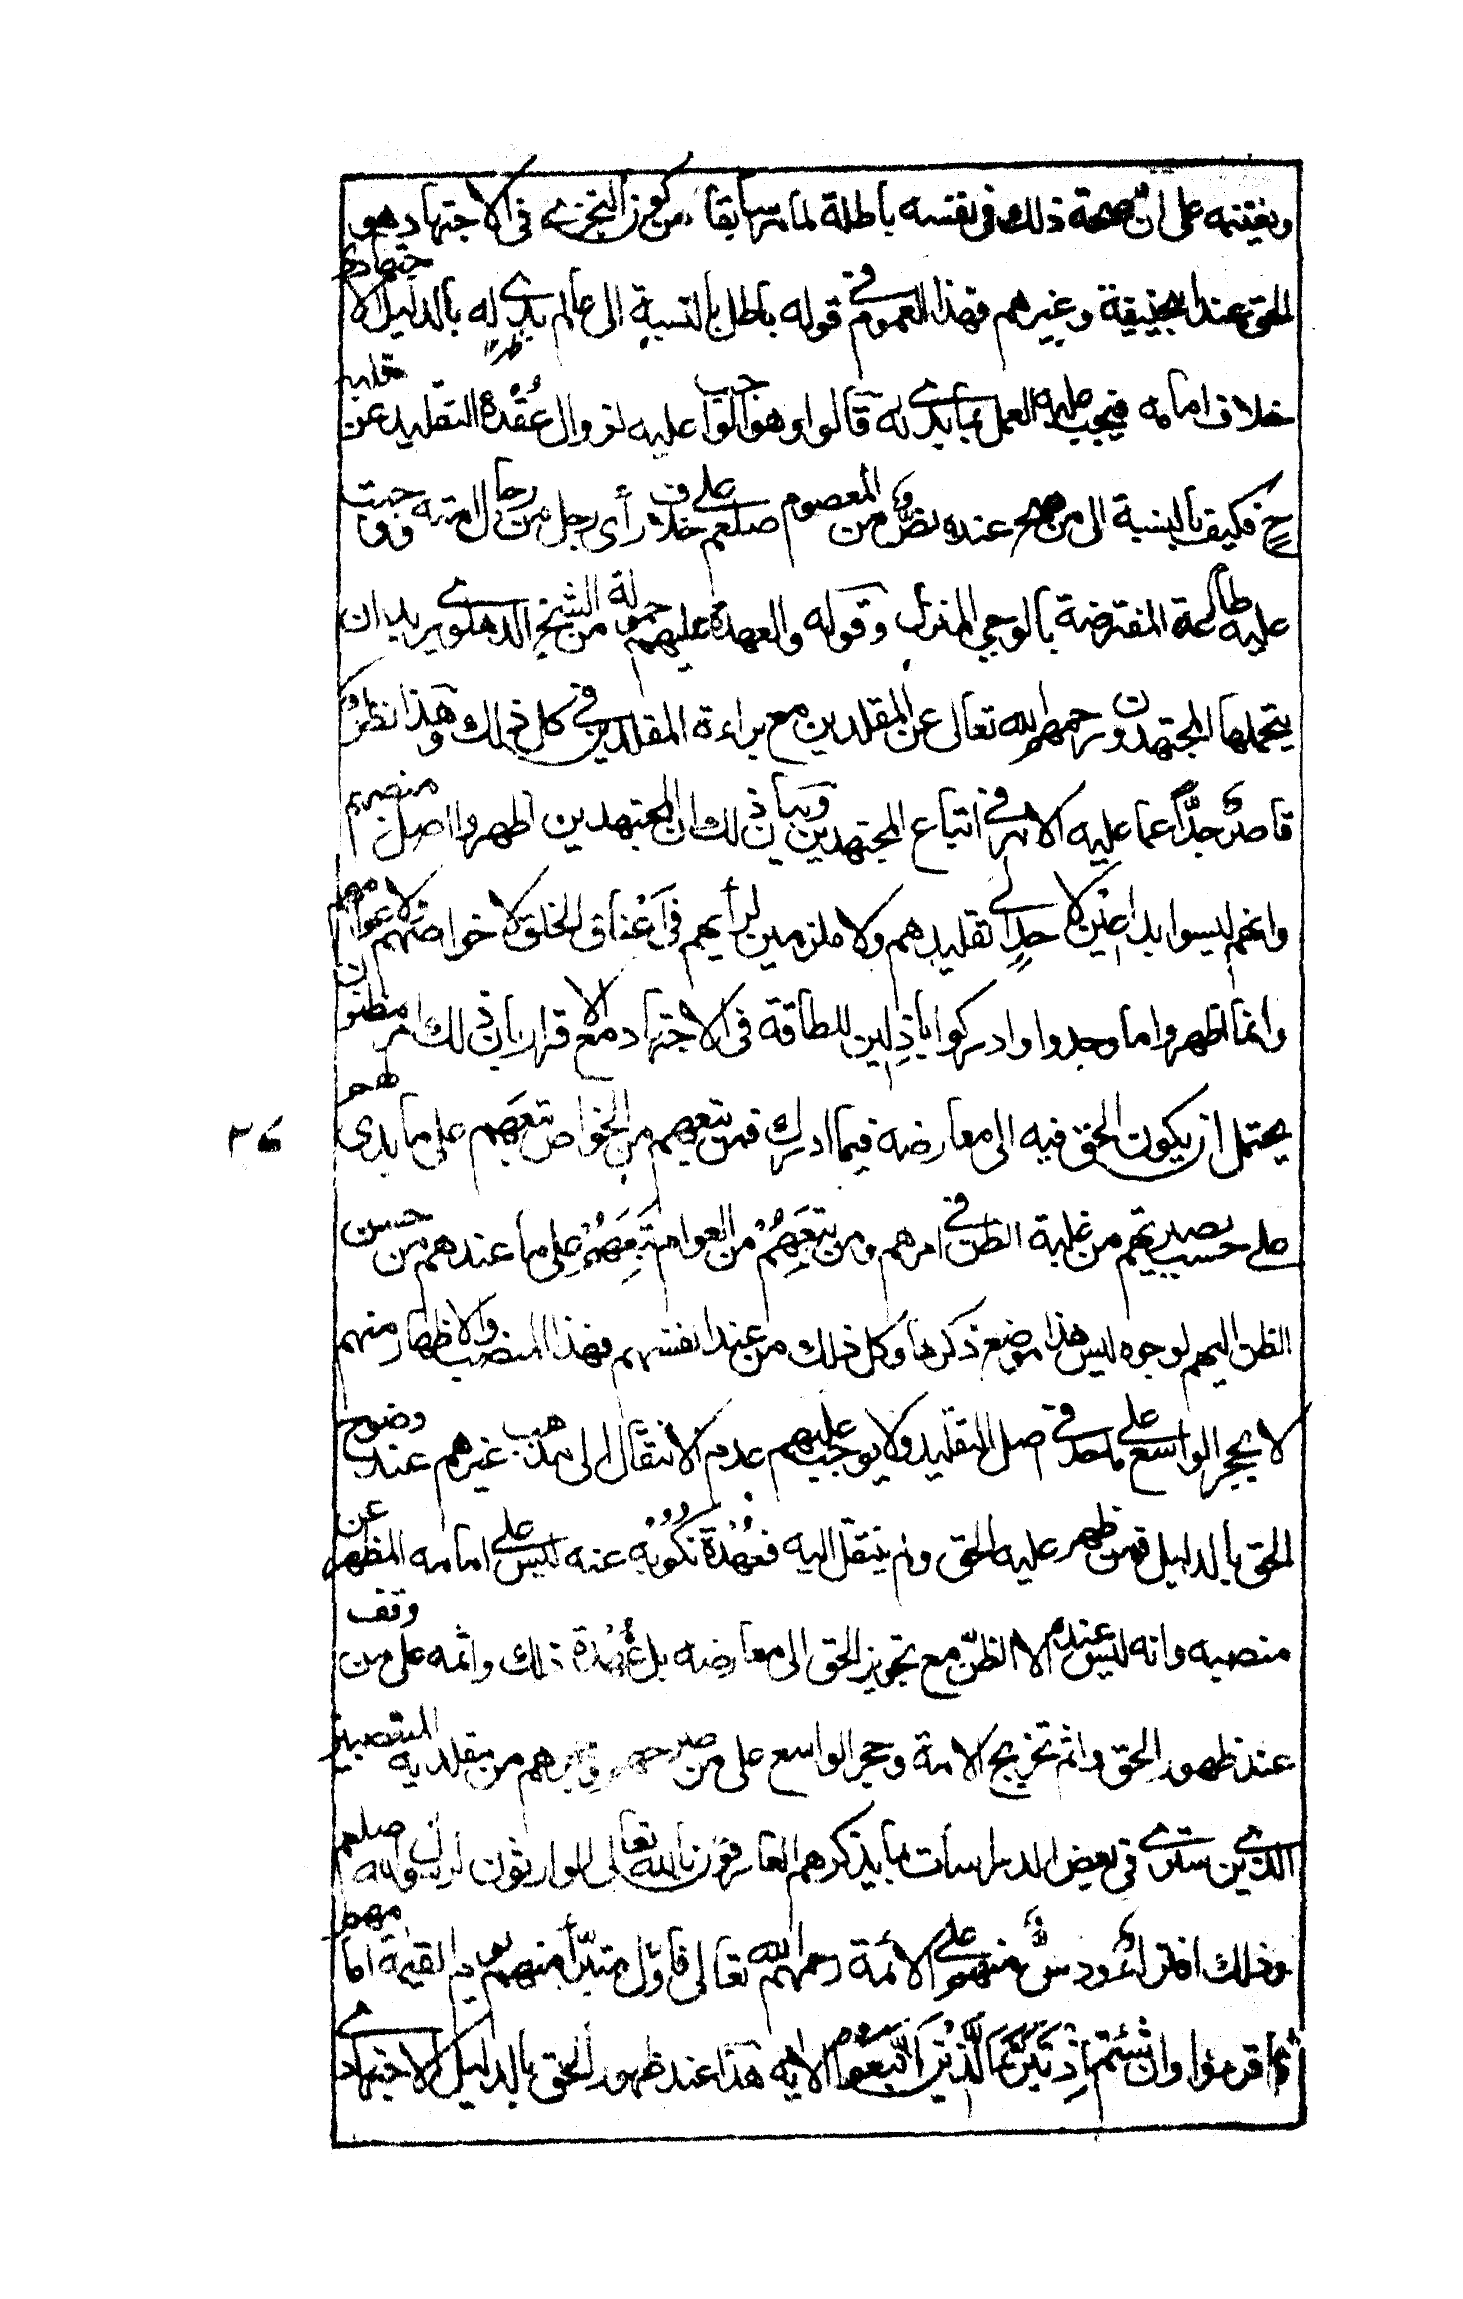 ويفتنه على ان صحة ذلك في نفسه باطلة لما مر سابقا من كون التجزي في الاجتهاد هو
الحق عند الحنيفية وغيرهم فهذا العموم في قوله باطل بالنسبة الى عالم بدى له بالدليل الاجتهادي
خلاف امامه فيجب عليه العمل بما بدى له قالوا وهو اجب عليه لزوال عقدة التقليد عن قلبه
ح فكيف بالنسبة الى من صح عنده نص من المعصوم صلعم على خلاف رأى رجل من رجال امته ووجبت
عليه طاعة المفترضة بالوحي المنزل وقوله والعهدة عليهم حمولة من الشيخ الدهلوى يريد ان
يتحملها المجتهدون رحمهم الله تعالى عن المقلدين مع براءة المقلدين في كل ذلك وهذا نظر
قاصر جدا عما عليه الامر في اتباع المجتهدين وبيان ذلك ان المجتهدين اظهروا اصل منصبهم
وانهم ليسوا بداعين لاحد الى تقليدهم ولا ملزمين لرأيهم في اعناق الخلق لا خواصهم ولا عوامهم
وانما اظهروا ما وجدوا وادركوا باذلين للطاقة في الاجتهاد مع الاقرار بان ذلك امر مظنون
يحتمل ان يكون الحق فيه الى معارضه فيما ادرك فمن تبعهم من الخواص تبعهم على ما بدى لهم
٢٤
على حسب بصيرتهم من غلبة الظن في امرهم ومن تبعهم من العوام تبعهم على ما عندهم من حسن
الظن اليهم لوجوه ليس هذا موضع ذكرها وكل ذلك من عند انفسهم فهذا المنصب والاظهار منهم
لا يحجر الواسع على احد في اصل التقليد ولا يوجب عليهم عدم الانتقال الى مذهب غيرهم عند وضوح
الحق بالدليل فمن ظهر عليه الحق ولم ينتقل اليه فعهدة نكوبه عنه ليس على امامه المظهر عن
منصبه وانه ليس عندهم الا الظن مع تجويز الحق الى معارضه بل عهدة ذلك واثمه على من وقف
عند ظهور الحق واثم تحريج الامة وحجر الواسع على من وغيرهم من مقلديه
الذين سترى في بعض الدراسات ما يذكرهم العارفون بالله تعالى الوارثون لرسول الله صلعم
وذلك افتراء ودس منهم على الائمة رحمهم الله تعالى فاول متبرأ منهم يوم القيمة امامهم
فاقرءوا وان شئتم اذ تبرأ الذين اتبعوا الاية هذا عند ظهور الحق بالدليل الاجتهادى